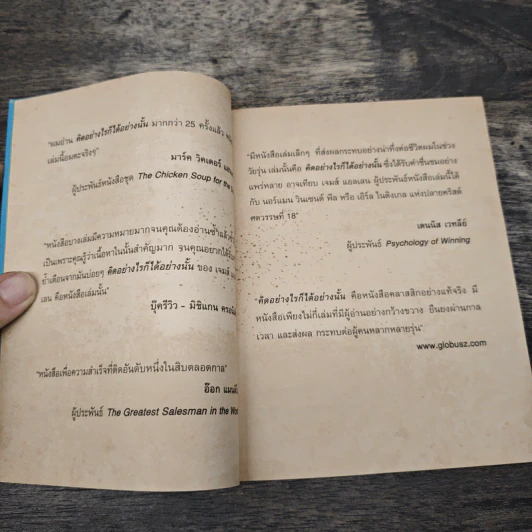 "ผมอ่าน คิดอย่างไรก็ได้อย่างนั้น มากกว่า 25 ครั้งแล้ว
เล่มนี้อมตะจริงๆ"
มาร์ค วิคเตอร์
ผู้ประพันธ์หนังสือชุด The Chicken Soup for the
"หนังสือบางเล่มมีความหมายมากจนคุณต้องอ่านซ้ำแล้ว
เป็นเพราะคุณรู้ว่าเนื้อหาในนั้นสำคัญมาก จนคุณอยากได้
ย้ำเตือนจากมันบ่อยๆ คิดอย่างไรก็ได้อย่างนั้น ของ เจมส์
เลน คือหนังสือเล่มนั้น"
บุ๊ครีวิว - มิชิแกน
"หนังสือเพื่อความสำเร็จที่ติดอันดับหนึ่งในสิบตลอดกาล"
อ๊อก แมนดิ
ผู้ประพันธ์ The Greatest Salesman in the
"มีหนังสือเล่มเล็กๆ ที่ส่งผลกระทบอย่างน่าทึ่งต่อชีวิตผมในช่วง
วัยรุ่น เล่มนั้นคือ คิดอย่างไรก็ได้อย่างนั้น ซึ่งได้รับคำชื่นชมอย่าง
แพร่หลาย อาจเทียบ เจมส์ แอลเลน ผู้ประพันธ์หนังสือเล่มนี้ได้
กับ นอร์แมน วินเซนต์ พีล หรือ เอิร์ล ไนติงเกล แห่งปลายคริสต์
ศตวรรษที่ 18"
เดนนิส เวทลีย์
ผู้ประพันธ์ Psychology of Winning
"คิดอย่างไรก็ได้อย่างนั้น คือหนังสือคลาสสิกอย่างแท้จริง มี
หนังสือเพียงไม่กี่เล่มที่มีผู้อ่านอย่างกว้างขวาง ยืนยงผ่านกาล
เวลา และส่งผล กระทบต่อผู้คนหลากหลายรุ่น"
www.globusz.com